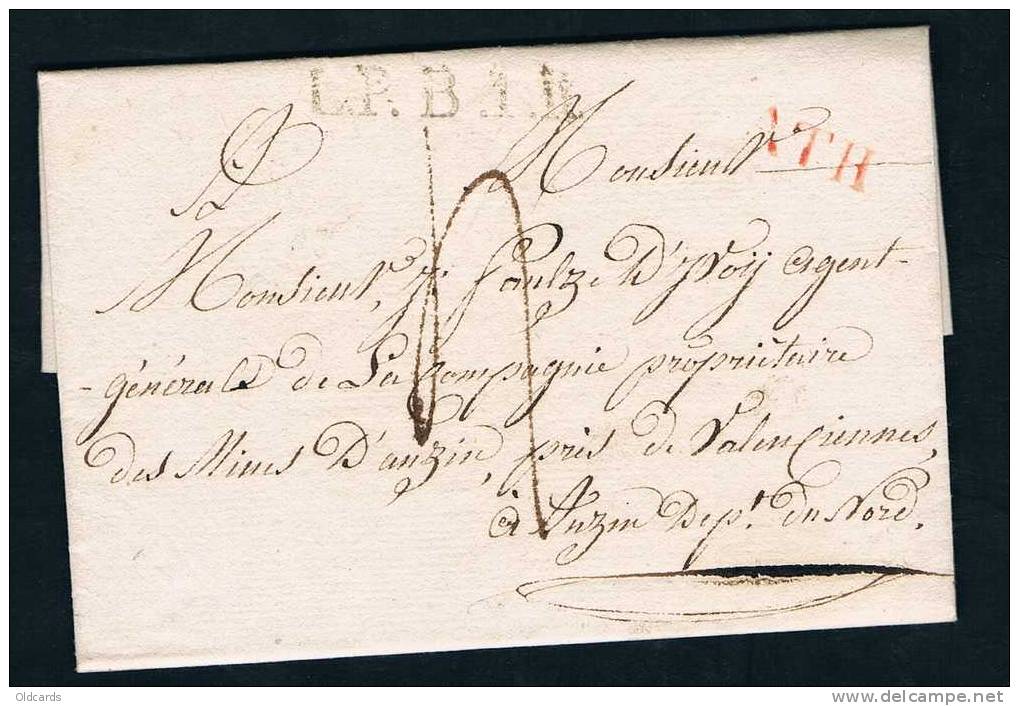 L.P.B.1.R.
ATH
Monsieur
Monsieur, J. Foulze D'Yvoij agent
générale de La compagnie propriétaire
des Mines D'anzin, près de Valenciennes,
à Anzin Dept. du Nord.
Oldcards
www.delcampe.net